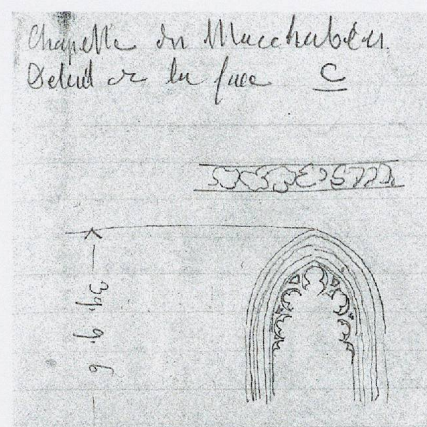 Chapelle des Macchabées.
Détail de la face C
39.9.6